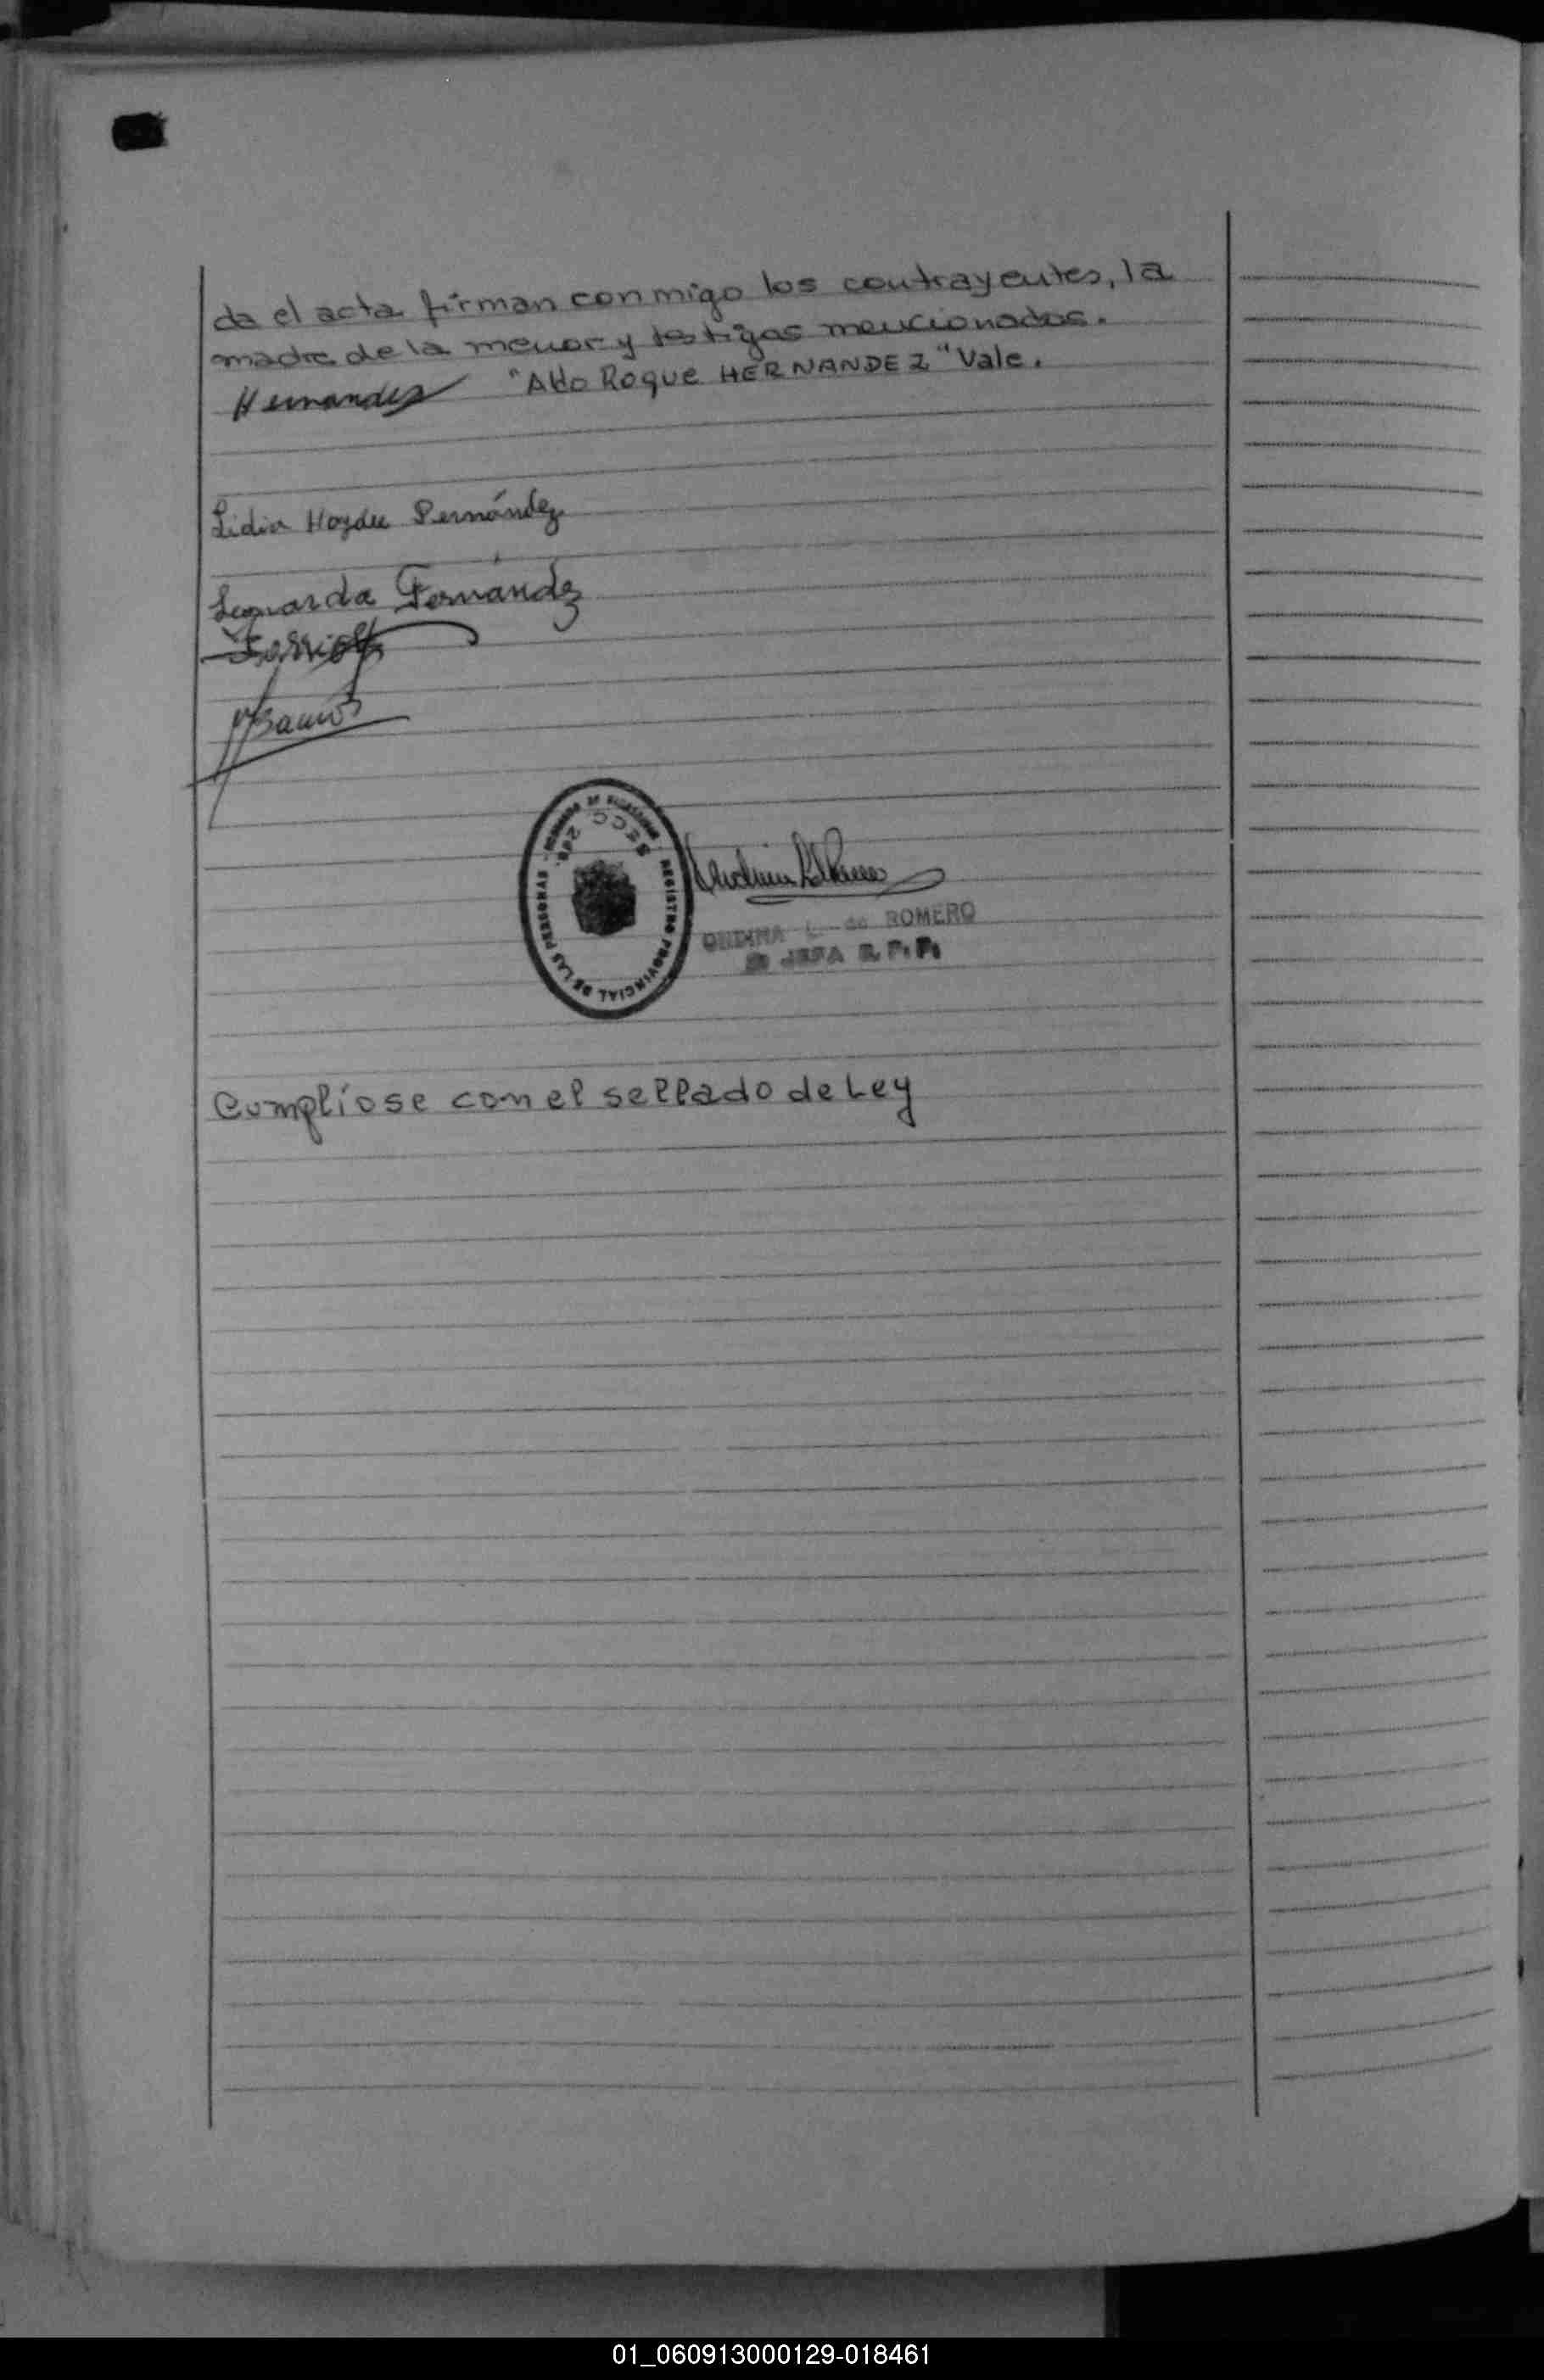 da el acta firman conmigo los contrayentes, la
madre de la menor y testigos mencionados.
Hernandez "Aldo Roque HERNANDEZ" Vale.
Lidia Haydee Fernández
Leonarda Fernández
SECC. 2da.
REGISTRO PROVINCIAL DE LAS PERSONAS
ONDINA L. de ROMERO
JEFA R. P. P.
Cumplíose con el sellado de Ley
01_060913000129-018461